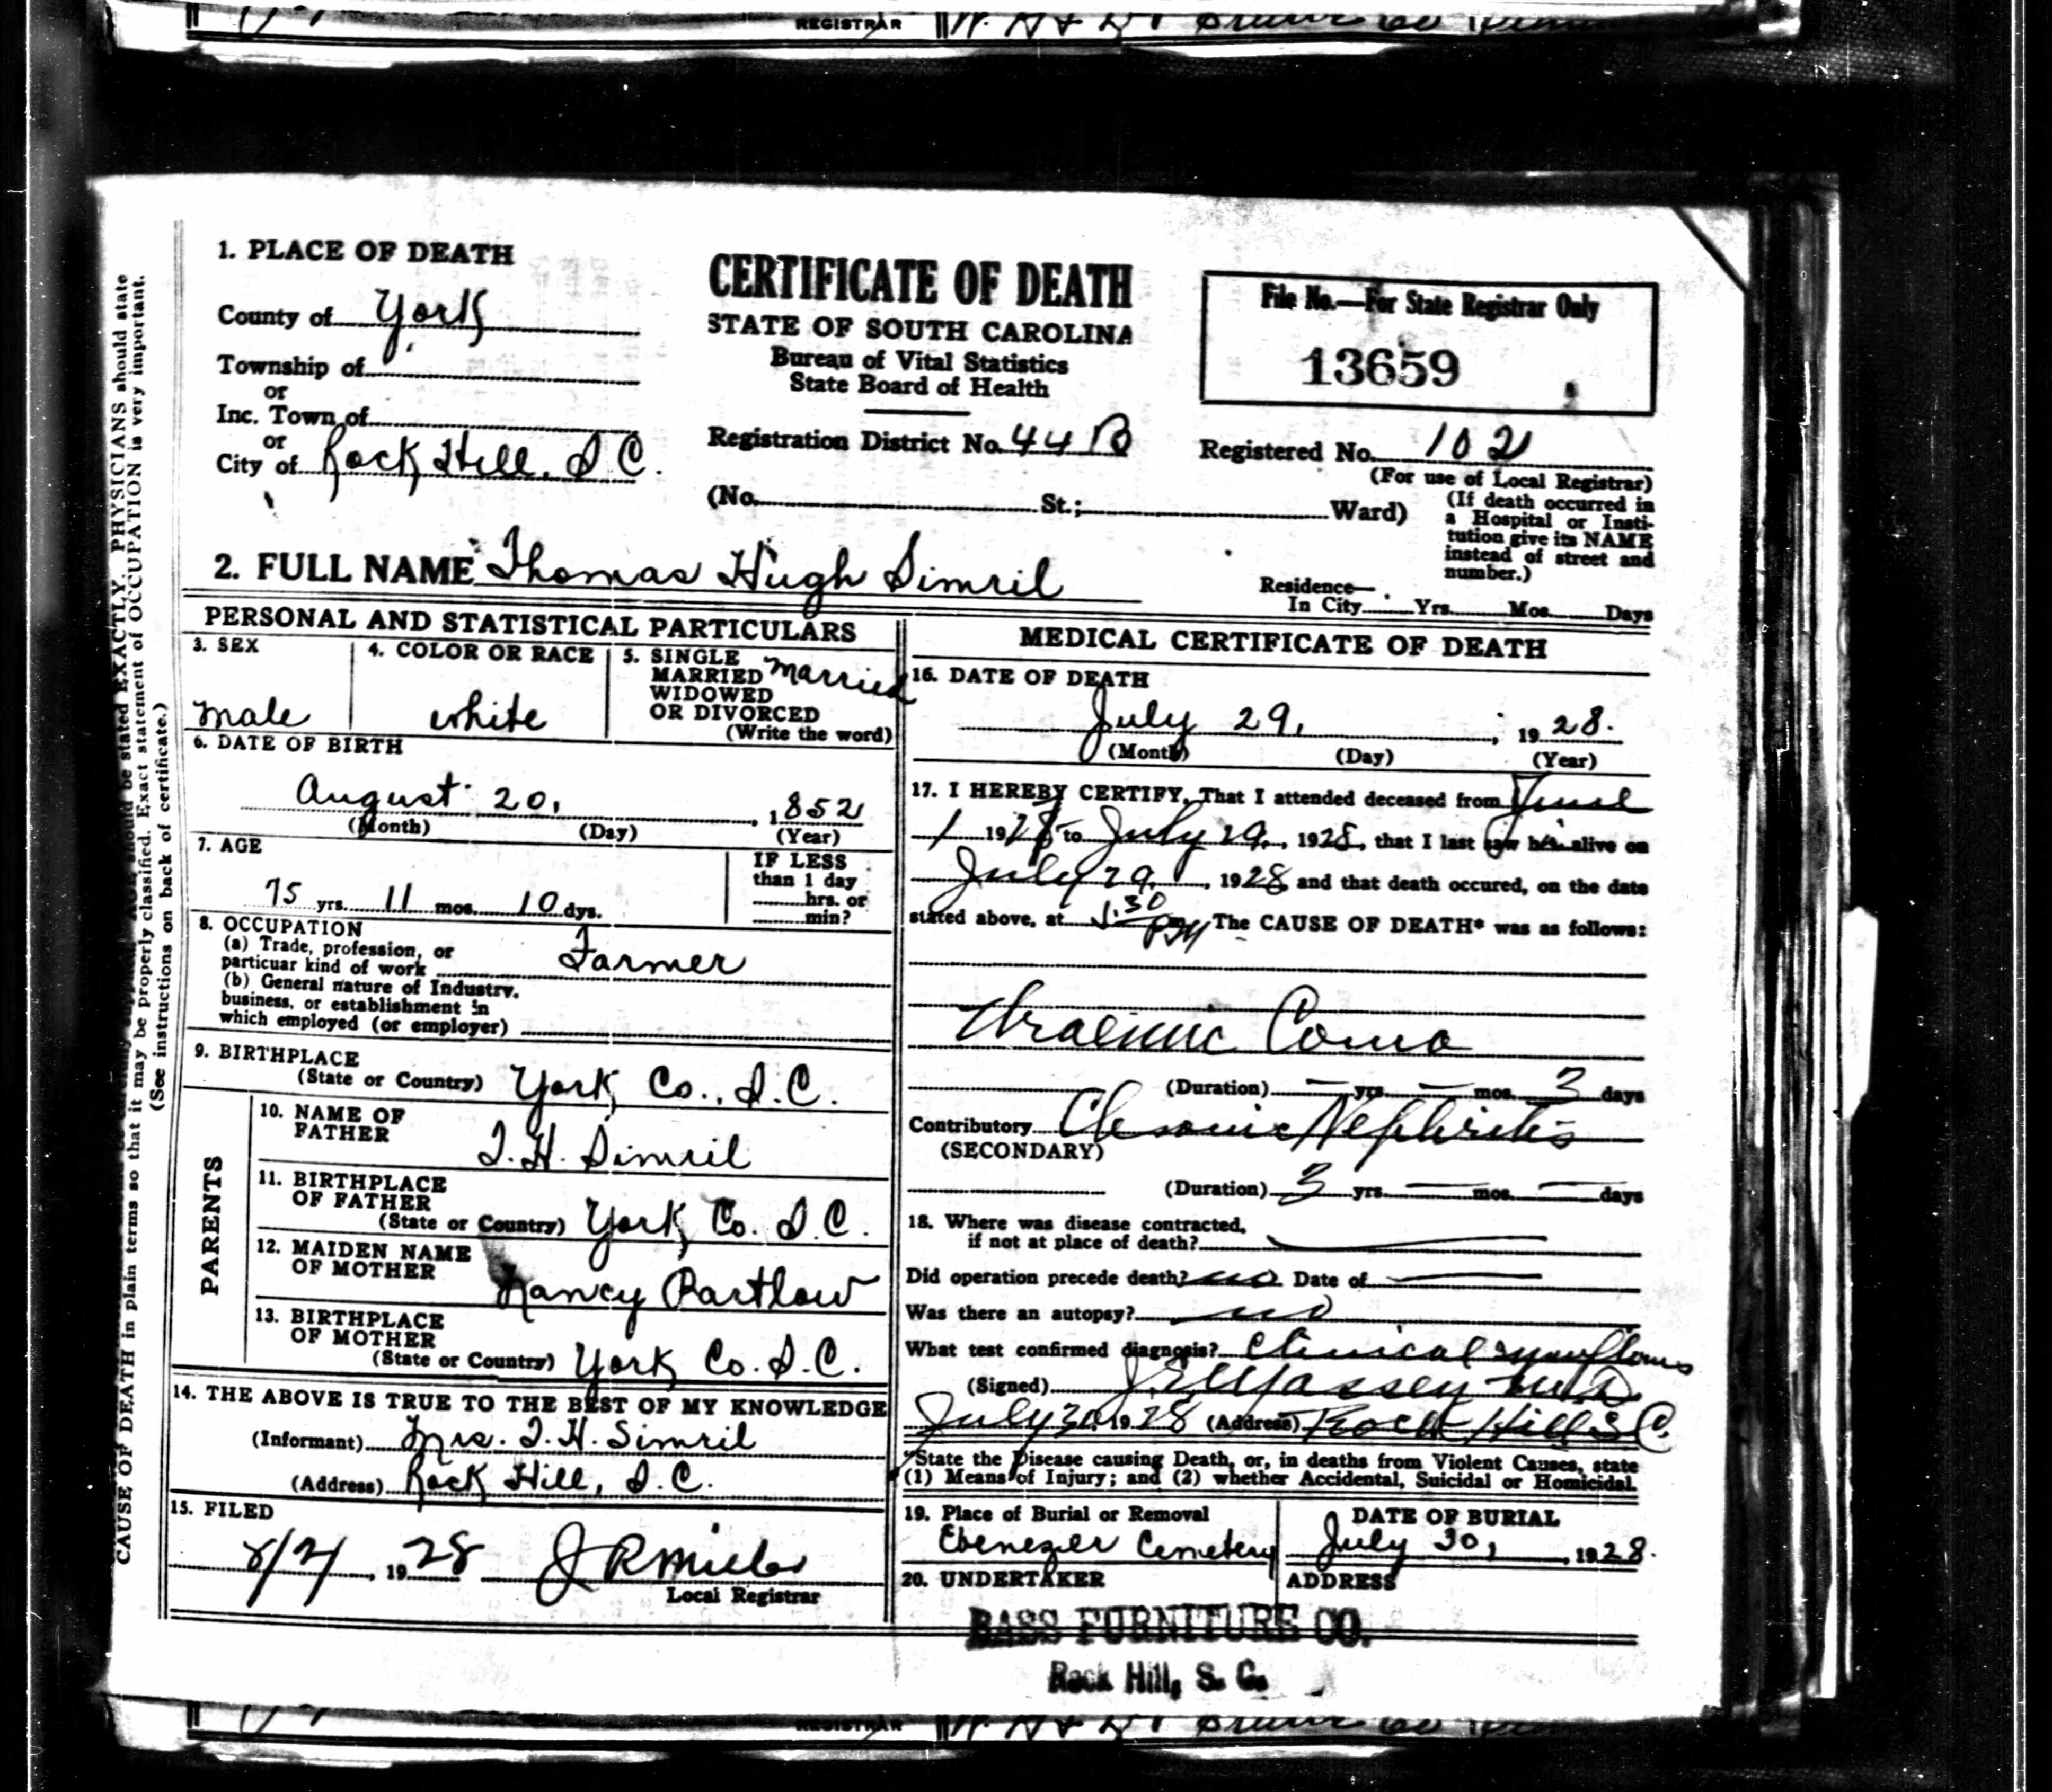 REGISTRAR
1. PLACE OF DEATH
County of York
Township of
or
Inc. Town of
or
City of Rock Hill, S C.
CERTIFICATE OF DEATH
STATE OF SOUTH CAROLINA
Bureau of Vital Statistics
State Board of Health
Registration District No. 44 B
(No. St.; Ward)
File No.—For State Registrar Only
13659
Registered No. 102
(For use of Local Registrar)
(If death occurred in
a Hospital or Insti-
tution give its NAME
instead of street and
number.)
2. FULL NAME Thomas Hugh Simril
Residence—
In City Yrs. Mos. Days
PERSONAL AND STATISTICAL PARTICULARS
3. SEX
male
4. COLOR OR RACE
white
5. SINGLE
MARRIED married
WIDOWED
OR DIVORCED
(Write the word)
6. DATE OF BIRTH
August 20, , 1852
(Month) (Day) (Year)
7. AGE
75 yrs. 11 mos. 10 dys.
IF LESS
than 1 day
hrs. or
min?
8. OCCUPATION
(a) Trade, profession, or
particuar kind of work Farmer
(b) General nature of Industry,
business, or establishment in
which employed (or employer)
9. BIRTHPLACE
(State or Country) York Co., S.C.
PARENTS
10. NAME OF
FATHER T. H. Simril
11. BIRTHPLACE
OF FATHER
(State or Country) York Co. S.C.
12. MAIDEN NAME
OF MOTHER Nancy Partlow
13. BIRTHPLACE
OF MOTHER
(State or Country) York Co. S.C.
14. THE ABOVE IS TRUE TO THE BEST OF MY KNOWLEDGE
(Informant) Mrs. T. H. Simril
(Address) Rock Hill, S.C.
15. FILED
8/2/, 1928 J R Miller
Local Registrar
MEDICAL CERTIFICATE OF DEATH
16. DATE OF DEATH
July 29, , 1928.
(Month) (Day) (Year)
17. I HEREBY CERTIFY, That I attended deceased from June
1 1928 to July 29, 1928, that I last saw him alive on
July 29, 1928 and that death occured, on the date
stated above, at .30 PM The CAUSE OF DEATH* was as follows:
Uraemic Coma
(Duration) — yrs. — mos. 3 days
Contributory Chronic Nephritis
(SECONDARY)
(Duration) 3 yrs. — mos. — days
18. Where was disease contracted,
if not at place of death?
Did operation precede death? no Date of —
Was there an autopsy? no
What test confirmed diagnosis? Clinical symptoms
(Signed) Massey M.D.
July 30 1928 (Address) Rock Hill S.C.
*State the Disease causing Death, or, in deaths from Violent Causes, state
(1) Means of Injury; and (2) whether Accidental, Suicidal or Homicidal.
19. Place of Burial or Removal
Ebenezer Cemetery
DATE OF BURIAL
July 30, , 1928.
20. UNDERTAKER
ADDRESS
BASS FURNITURE CO.
Rock Hill, S. C.
CAUSE OF DEATH in plain terms so that it may be properly classified. Exact statement of OCCUPATION is very important.
(See instructions on back of certificate.)
be stated EXACTLY. PHYSICIANS should state
REGISTRAR